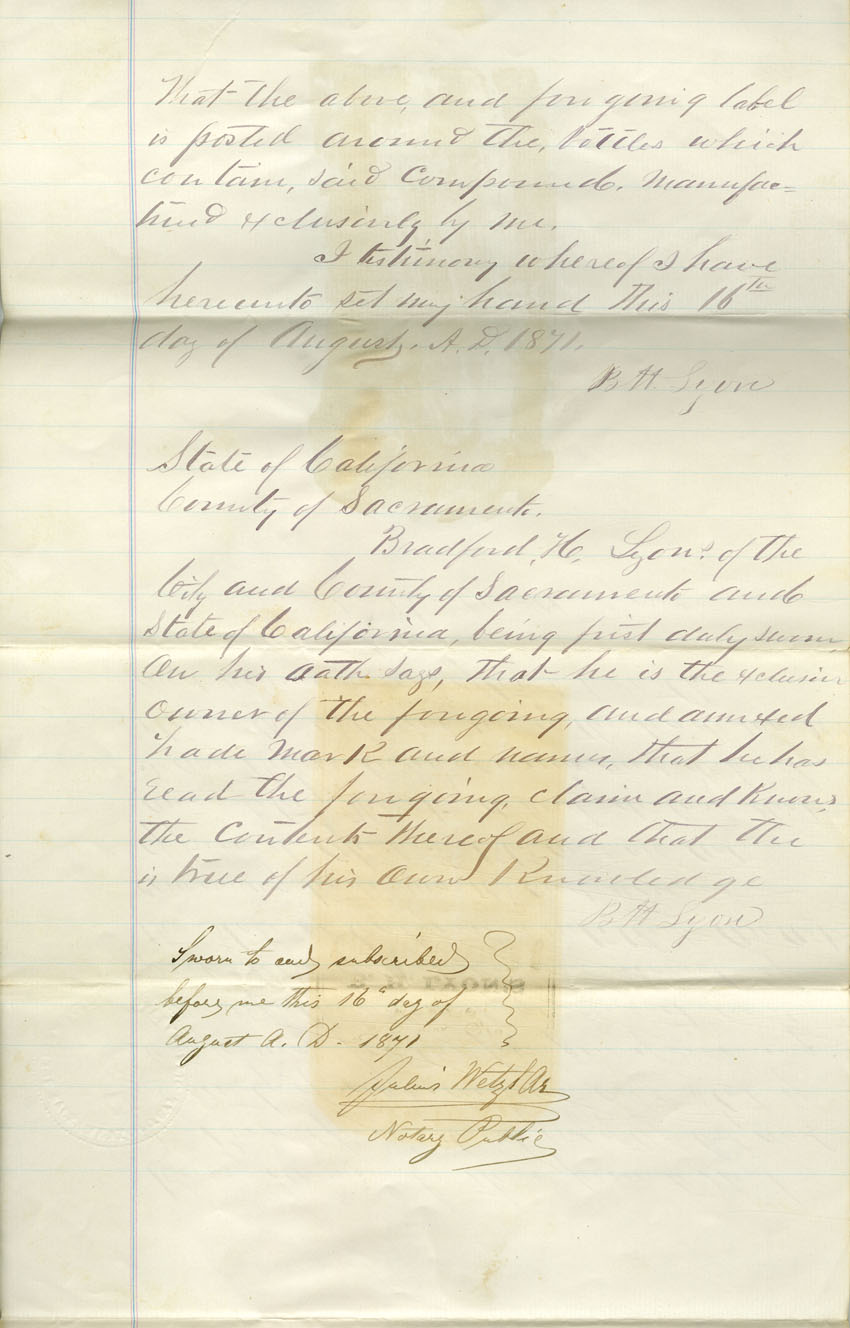 That the above, and foregoing label
is posted around the, bottles which
contain, said Compound. Manufac=
tured exclusively by me.
I testimony whereof I have
hereunto set my hand this 16th
day of August, A.D. 1871.
B H Lyon
State of California
County of Sacramento.
Bradford, H, Lyon, of the
City and County of Sacramento and
State of California, being first duly sworn,
On his oath says, that he is the exclusive
owner of the foregoing, and annexed
trade Mark and names, that he has
read the foregoing, claim and knows
the contents thereof and that the
is true of his own Knowledge
B H Lyon
Sworn to and subscribed
before me this 16" day of
August A. D. 1871
Julius Wetzlar
Notary Public